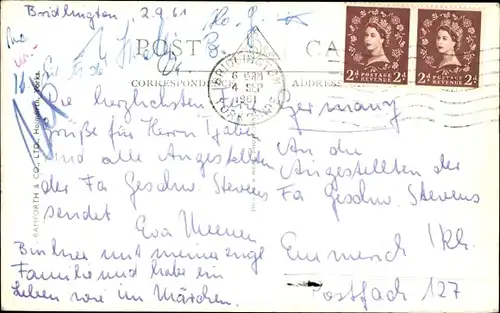 Bridlington, 2.9.61
POST CARD
CORRESPONDENCE
ADDRESS
BRIDLINGTON
6 PM
4 SEP
1961
YORKSHIRE
2d POSTAGE REVENUE 2d
2d POSTAGE REVENUE 2d
BAMFORTH & CO., LTD., Holmfirth, Yorks.
Die herzlichsten
Grüße für Herrn
und alle Angestellten
der Fa Geschw. Stevens
sendet
Eva
Bin hier mit meiner engl
Familie und habe ein
Leben wie im Märchen.
Germany
An die
Angestellten der
Fa Geschw. Stevens
Emmerich /Rh.
Postfach 127